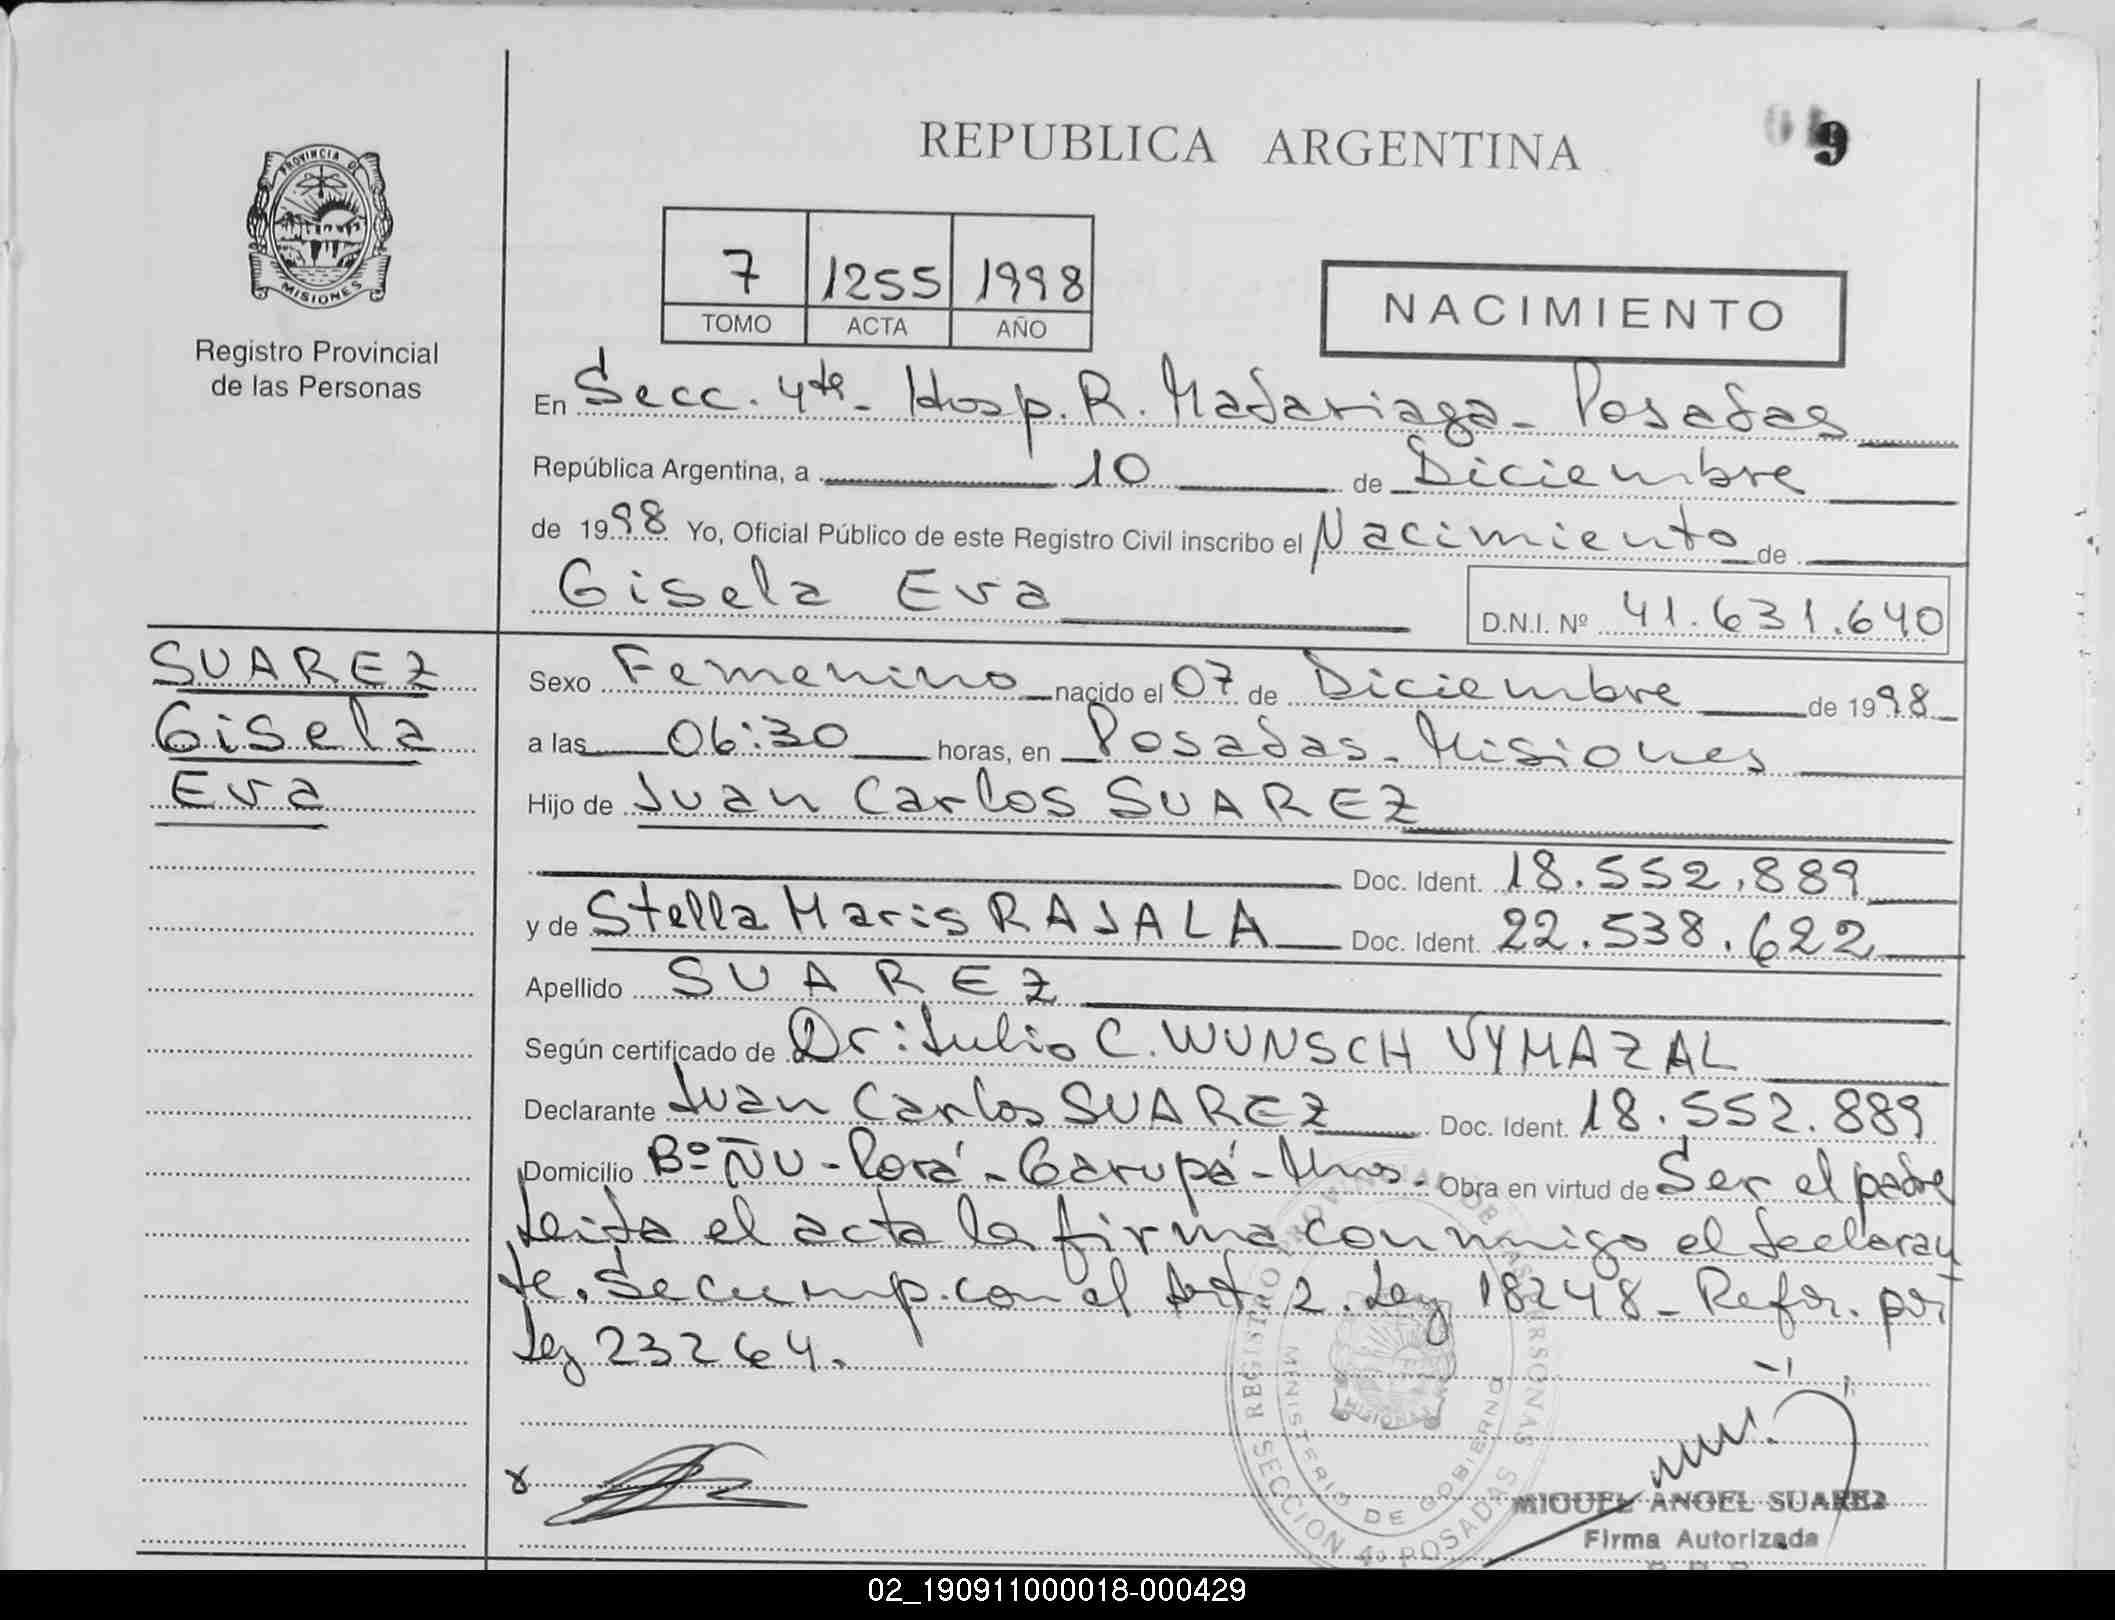 REPUBLICA ARGENTINA
9
PROVINCIA DE
MISIONES
Registro Provincial
de las Personas
7 1255 1998
TOMO ACTA AÑO
NACIMIENTO
En Secc. 4ta - Hosp. R. Madariaga - Posadas
República Argentina, a 10 de Diciembre
de 1998 Yo, Oficial Público de este Registro Civil inscribo el Nacimiento de
Gisela Eva
D.N.I. Nº 41.631.640
SUAREZ
Gisela
Eva
Sexo Femenino nacido el 07 de Diciembre de 1998
a las 06:30 horas, en Posadas - Misiones
Hijo de Juan Carlos SUAREZ
Doc. Ident. 18.552.889
y de Stella Maris RAJALA Doc. Ident. 22.538.622
Apellido SUAREZ
Según certificado de Dr: Julio C. WUNSCH VYMAZAL
Declarante Juan Carlos SUAREZ Doc. Ident. 18.552.889
Domicilio Bº ÑU - Porá - Garupá - Mnes. Obra en virtud de Ser el padre
Leida el acta la firma conmigo el declaran
te. Se cump. con el Art. 2. Ley 18248 - Refor. por
Ley 23264.
MINISTERIO DE GOBIERNO
SECCION 4º POSADAS
MISIONES
MIGUEL ANGEL SUAREZ
Firma Autorizada
02_190911000018-000429